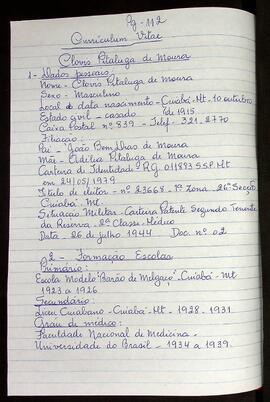 Pg - 112
Curriculum Vitae
Clovis Pitaluga de Moura
1 - Dados pessoais
Nome - Clovis Pitaluga de Moura
Sexo - Masculino
Local e data nascimento - Cuiabá - Mt - 10 outubro
Estado civil - casado de 1915.
Caixa Postal nº 839 - Telef. 321-2770
Filiação:
Pai - João Bem Dias de Moura
Mãe - Udilia Pitaluga de Moura
Carteira de Identidade nº RG. 011893 SSP. Mt
em 24/05/1979
Título de eleitor - nº 23668 - 1ª Zona - 26ª Secção
Cuiabá - Mt.
Situação Militar - Carteira Patente Segundo Tenente
da Reserva - 2ª Classe Médico
Data - 26 de julho 1944 Doc. nº 02
2 - Formação Escolar
Primário:
Escola Modelo "Barão de Melgaço" - Cuiabá - Mt
1923 a 1926
Secundário:
Liceu Cuiabano - Cuiabá - Mt - 1928 - 1931
Grau de médico:
Faculdade Nacional de Medicina -
Universidade do Brasil - 1934 a 1939.